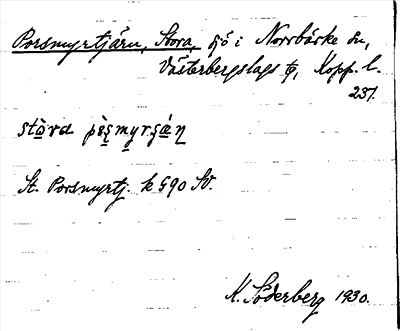 Porsmyrtjärn, Stora, sjö i Norrbärke sn,
Västerbergslags tg, Kopp. l.
237.
stòra
St. Porsmyrtj. k 590 SV.
M. Söderberg 1930.